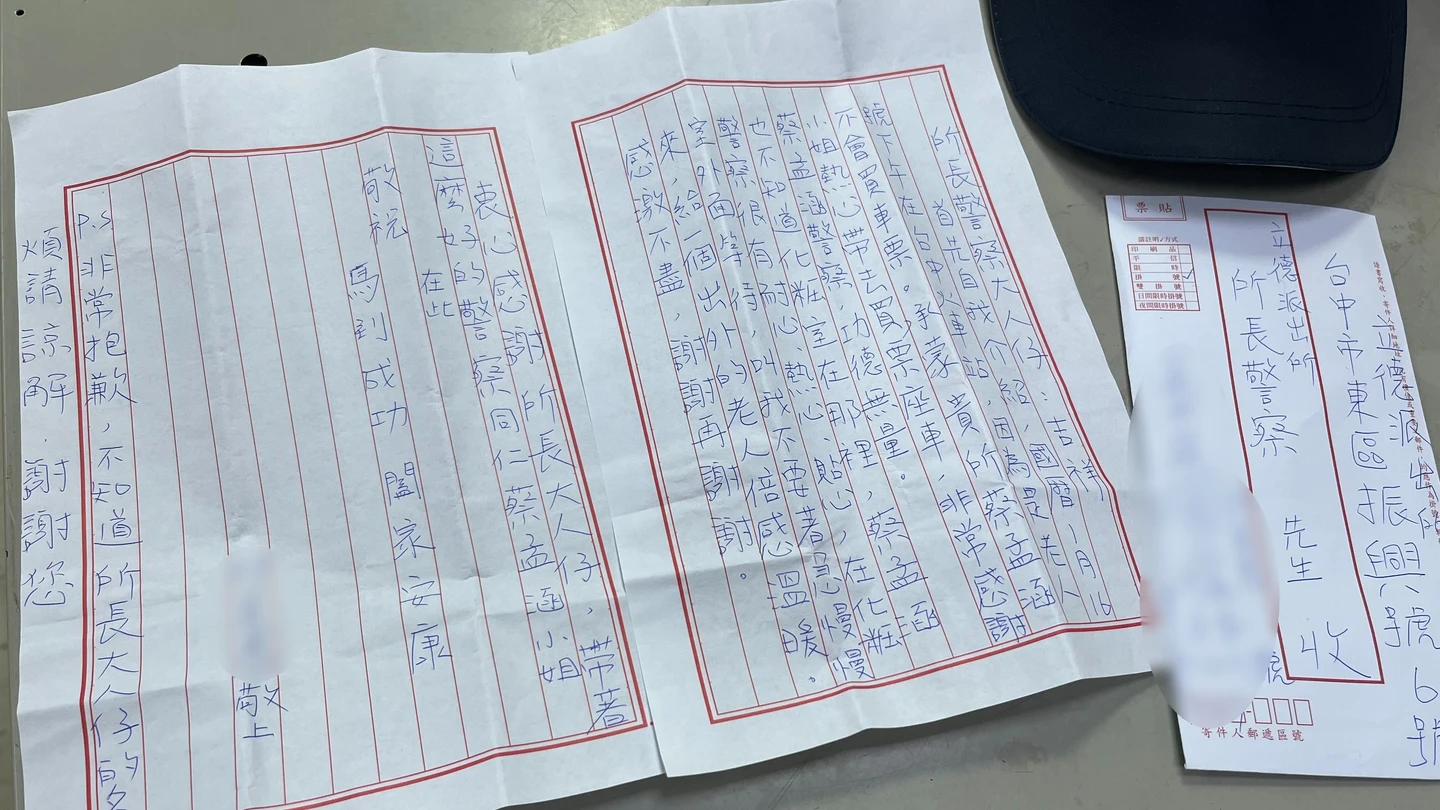 所長警察大人仔：吉祥
首先自我介紹，國曆1月16
號下午在台中火車站，因為是老人
不會買車票。承蒙貴所蔡孟涵
小姐熱心帶去買票座車，非常感謝
蔡孟涵警察，功德無量。蔡孟涵
也不知道化粧室在那裡，在化粧
警察很有耐心、熱心、貼心，
室外面等待，叫我不要著急慢慢
來，給一個出外的老人倍感溫暖。
感激不盡，謝謝再謝謝。
衷心感謝所長大人仔，帶著
這麼好的警察同仁蔡孟涵小姐
在此
敬祝
馬到成功 闔家安康
敬上
P.S 非常抱歉，不知道所長大人仔的名
煩請諒解，謝謝您
立德派出所
台中市東區振興六號6號
立德派出所
所長警察 先生 收
票貼
請註明✓方式
印刷品
平信
限時
掛號
雙掛號
日間限時掛號
夜間限時掛號
號
寄件人郵遞區號